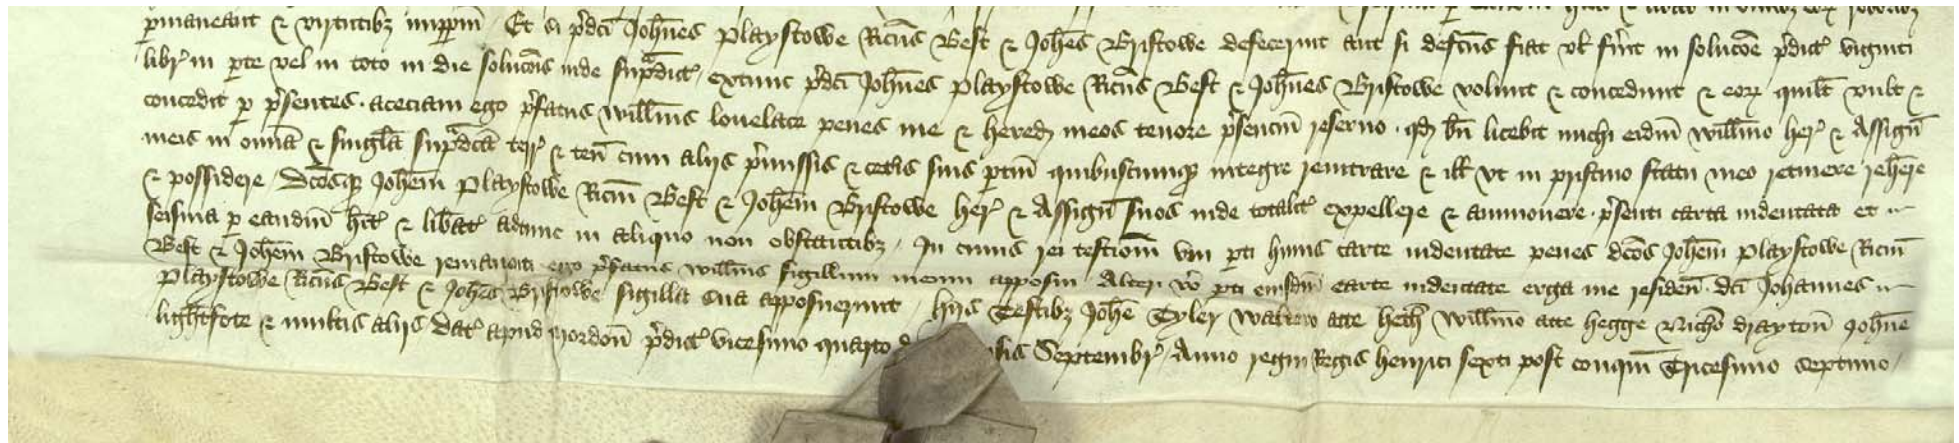 p̱maneant & virtutibȝ imppm̄ Et si p̄dc̄i Joħnes Playstowe Ric̄us Best & Joħes Bristowe defecerint aut si defc̄us fiat vl̄ fūit in soluc̄oe p̄dict̄ viginti
libr̄ in p̱te vel in toto in die soluc̄ois inde sup̄adict̄ . extunc p̄dc̄i Joħnes Playstowe Ric̄us Best & Joħnes Bristowe volunt & concedunt & eorꝝ quil̄t vult &
concedit p̱ p̄sentes . aceciam ego p̄fatus Will̄mus lovelace penes me & hered̄ meos tenore p̄senciū reseruo . qd̄ bn̄ licebit michi eidm̄ Will̄mo her̄ & Assign̄
meis in om̄ia & singl̄a sup̄adc̄a terr̄ & ten̄ cum aliis p̄missis & cet̄is suis p̱tin̄ quibuscumqꝫ integre reintrare & ill̄ vt in pristino statu meo retinere reħere
& possidere . Dc̄osqꝫ Joħem Playstowe Ric̄m Best & Joħem Bristowe her̄ & Assign̄ suos inde totalit̄ expellere & ammouere . p̄senti carta indentata et
seisina p̱ eandm̄ hit̄ & libat̄ adtunc in aliquo non obstantibȝ . In cuius rei testīom̄ vni p̱ti huius carte indentate penes dc̄os Joħem Playstowe Ric̄m
Best & Joħem Bristowe remanenti ego p̄fatus Will̄mus sigillum meum apposui Alteri v̄o p̱ti eiusdm̄ carte indentate erga me residen̄ dc̄i Johannes
Playstowe Ric̄us Best & Joħes Bristowe sigilla sua apposuerunt . hijs Testibȝ Joħe Tyler Waltero atte hetħ Will̄mo atte hegge Nicħo drayton̄ Joħne
ligħtfote & multis aliis Dat̄ apud Mordon̄ p̄dict̄ vicesimo quarto Septembr̄ . Anno regni Regis henrici sexti post conqm̄ Tricesimo septimo .